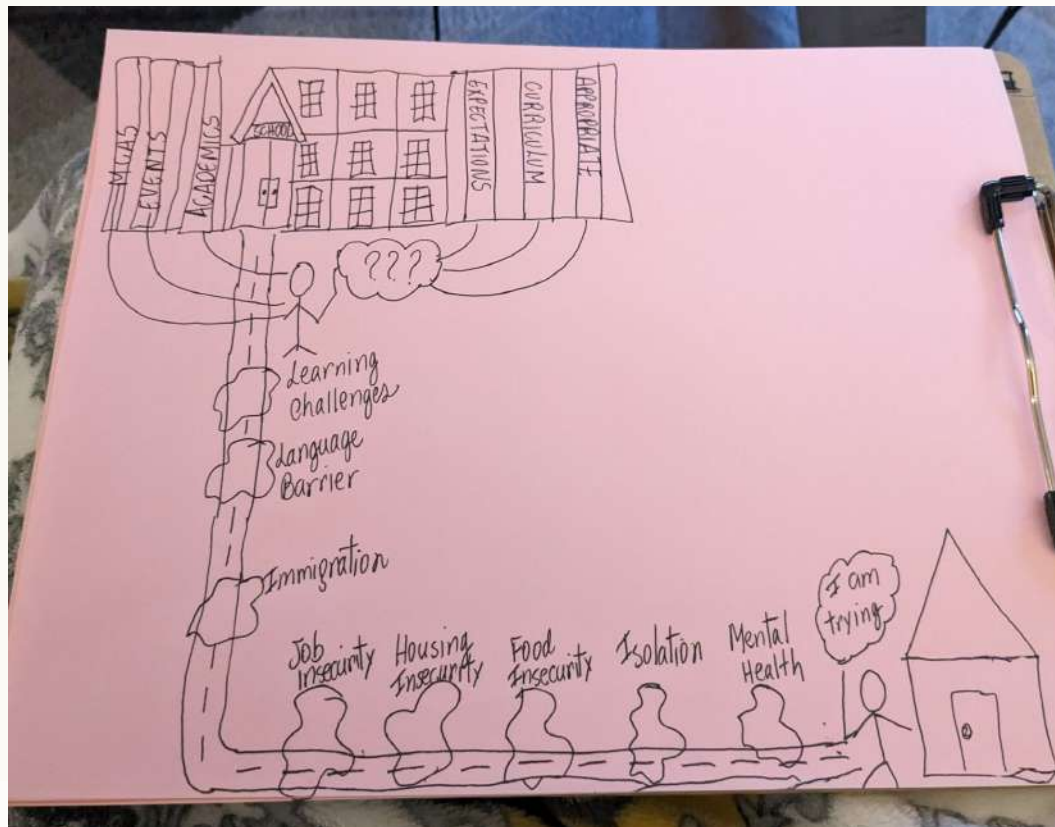 MCAS
EVENTS
ACADEMICS
SCHOOL
EXPECTATIONS
CURRICULUM
APPROPRIATE
???
Learning
Challenges
Language
Barrier
Immigration
Job
Insecurity
Housing
Insecurity
Food
Insecurity
Isolation
Mental
Health
I am
trying